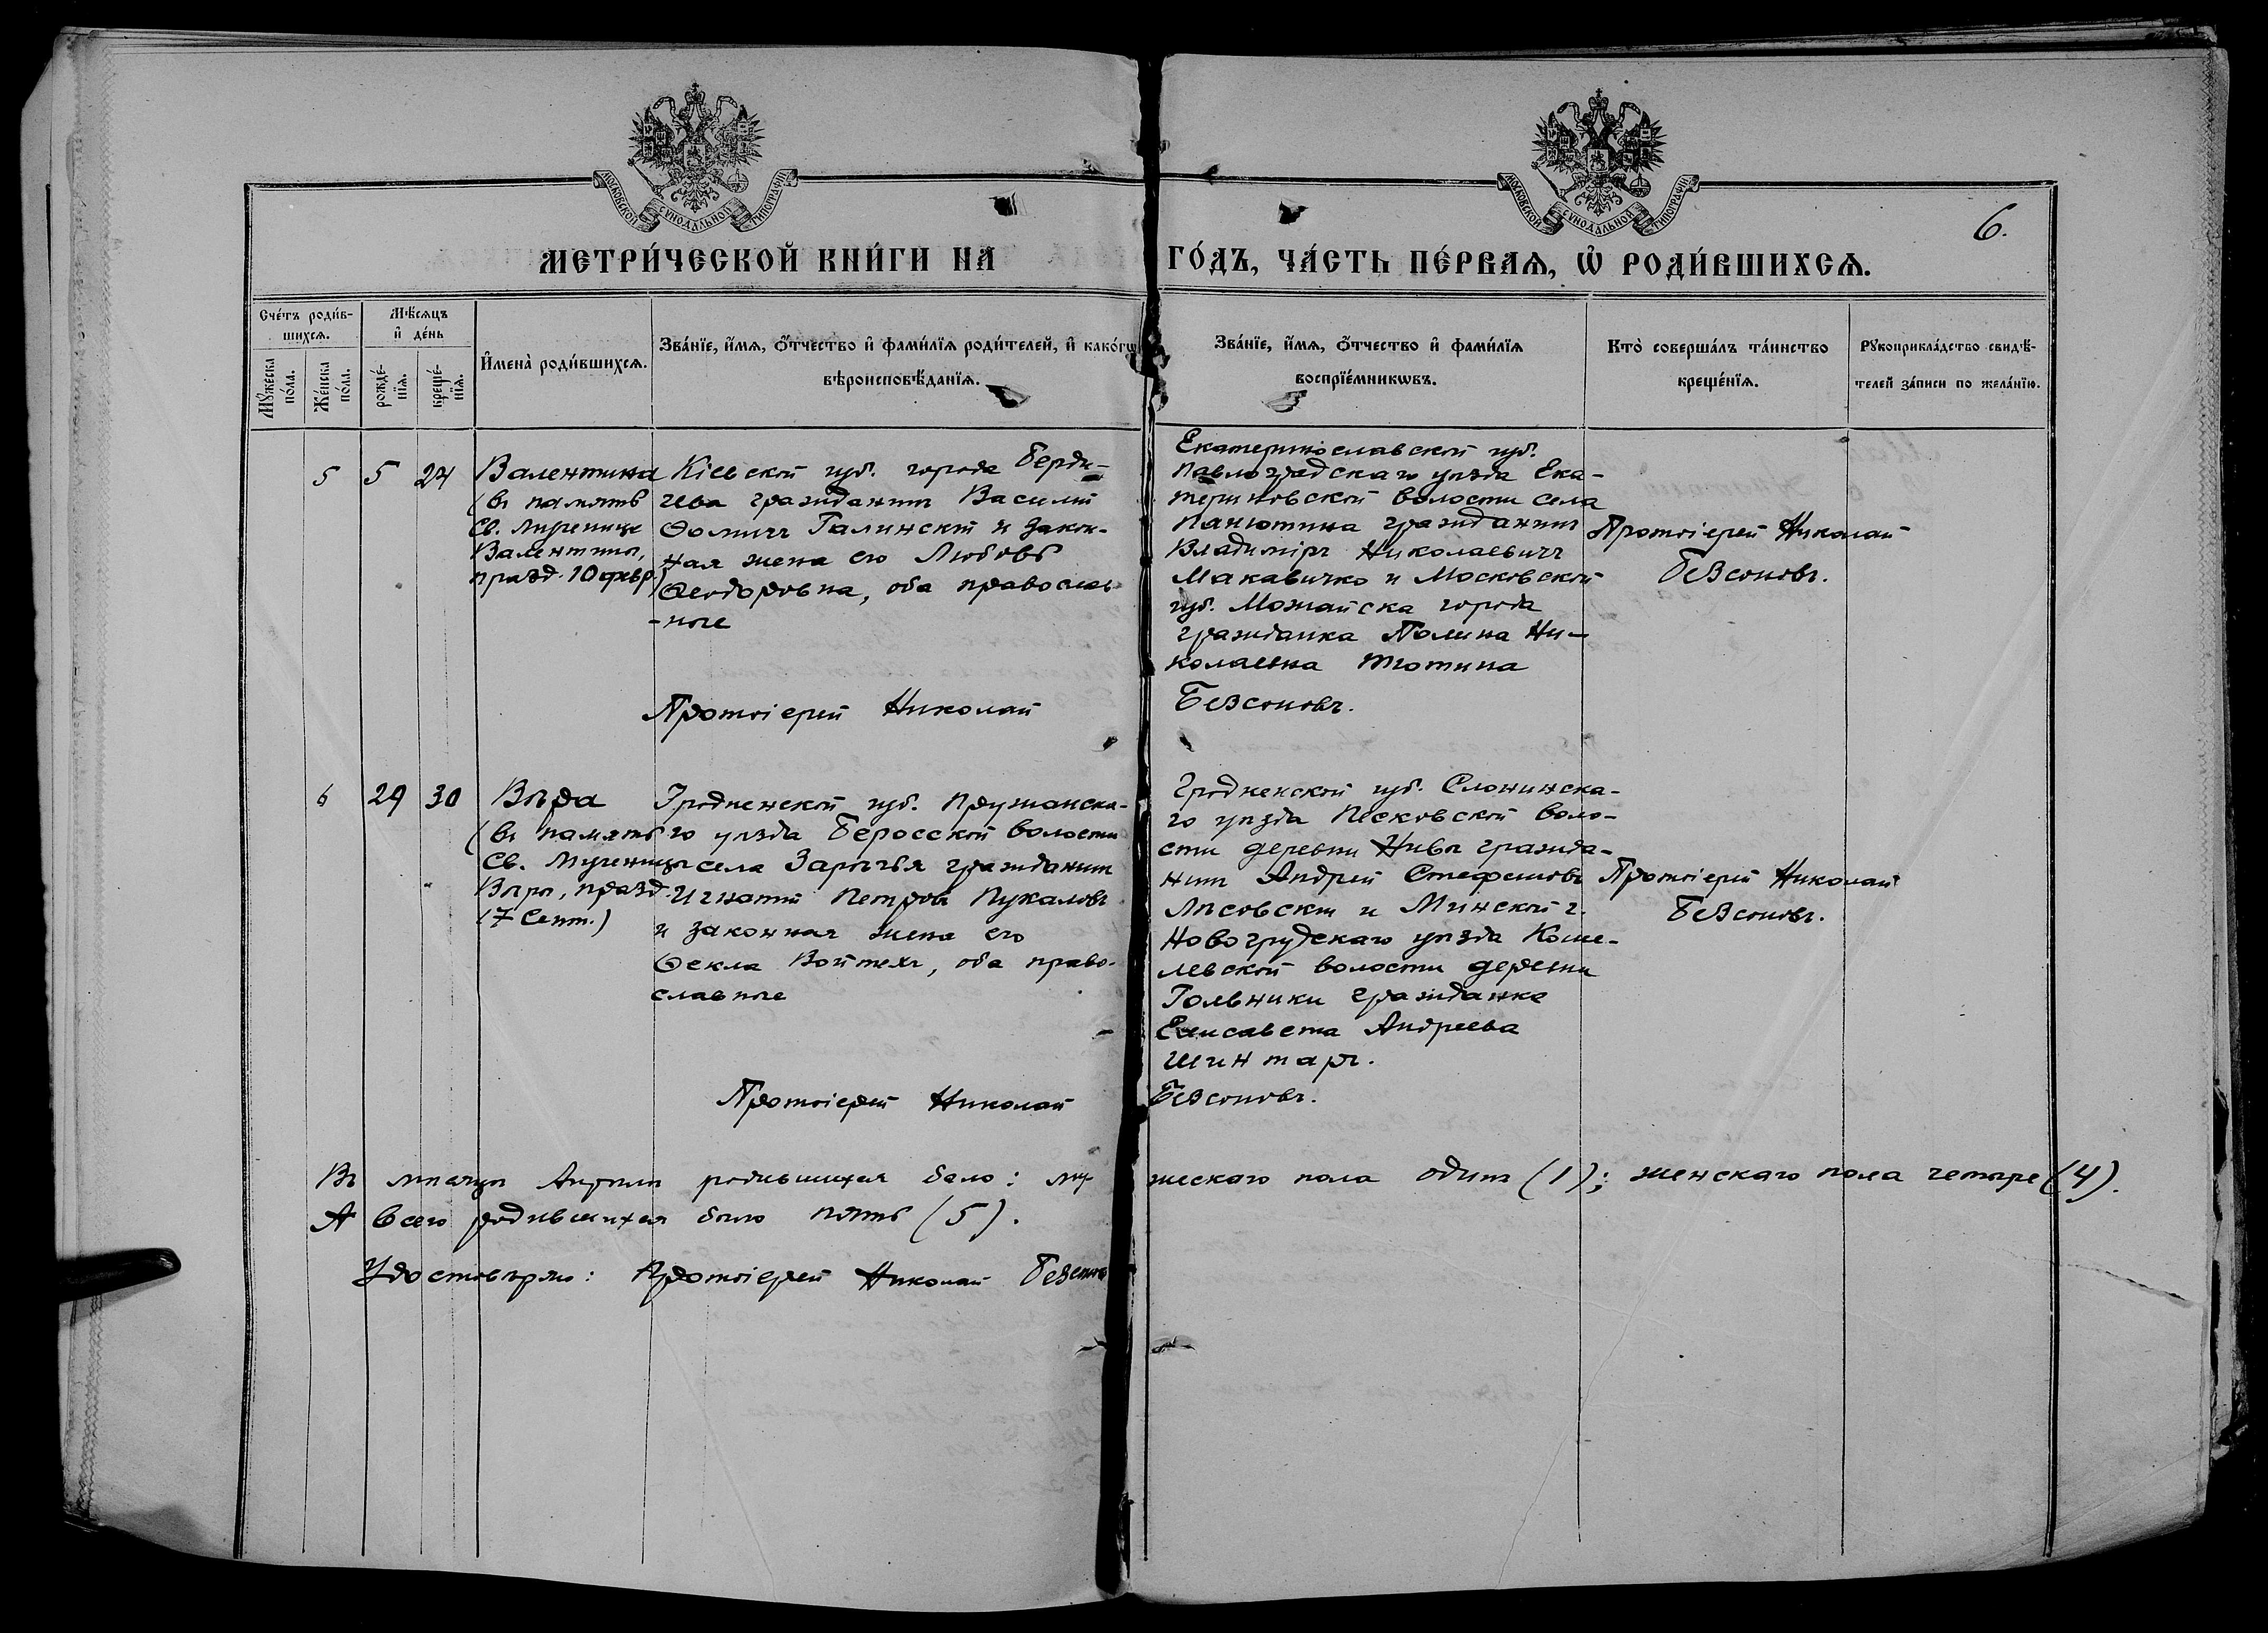 МОСКОВСКОЙ СѴНОДАЛЬНОЙ ТИПОГРАФІИ
МОСКОВСКОЙ СѴНОДАЛЬНОЙ ТИПОГРАФІИ
6.
МЕТРИ́ЧЕСКОЙ КНИ́ГИ НА ГО́ДЪ, ЧА́СТЬ ПЕ́РВАЯ, Ѡ РОДИ́ВШИХСЯ.
Сче́тъ роди́в-
шихся.
Мѣ́сяцъ
и де́нь
Му́жеска
по́ла.
Же́нска
по́ла.
рожде́-
нїя.
креще́-
нїя.
И҆мена̀ роди́вшихся.
Зва́нїе, и҆́мя, ѻ҆́тчество и҆ фами́лїя роди́телей, и҆ како́гѡ
вѣроисповѣ́данїя.
Зва́нїе, и҆́мя, ѻ҆́тчество и҆ фами́лїя
воспрїе́мникѡвъ.
Кто̀ соверша́лъ та́инство
креще́нїя.
Рꙋкоприкла́дство свидѣ́-
телей за́писи по жела́нїю.
5 5 24
Валентина
(въ память
Св. Мученицы
Валентины,
празд. 10 февр.)
Кіевской губ. города Берди-
чева гражданинъ Василій
Ѳомичъ Галинскій и закон-
ная жена его Любовь
Ѳеодоровна, оба православ-
-ные
Екатеринославской губ.
Павлоградскаго уѣзда Ека-
териновской волости села
Панютина гражданинъ
Владиміръ Николаевичъ
Макавичко и Московской
губ. Можайска города
гражданка Полина Ни-
колаевна Тютина
Протоіерей Николай
Безсоновъ.
Протоіерей Николай Безсоновъ.
6 29 30
Вѣра
(въ память
Св. Мученицы
Вѣры, празд.
17 Сент.)
Гродненской губ. Пружанска-
го уѣзда Беросской волости
села Зарѣчья гражданинъ
Игнатій Петровъ Пукаловъ
и законная жена его
Ѳекла Войтехъ, оба право-
славные
Гродненской губ. Слонимска-
го уѣзда Песковской воло-
сти деревни Нивы гражда-
нинъ Андрей Стефановъ
Лисовскій и Минской г.
Новогрудскаго уѣзда Коше-
левской волости деревни
Гольники гражданка
Елисавета Андреева
Шинтаръ.
Протоіерей Николай
Безсоновъ.
Протоіерей Николай Безсоновъ.
Въ мѣсяцѣ Апрѣлѣ родившихся было: мужескаго пола одинъ (1); женскаго пола четыре (4).
А всего родившихся было пять (5).
Удостовѣряю: Протоіерей Николай Безсоновъ